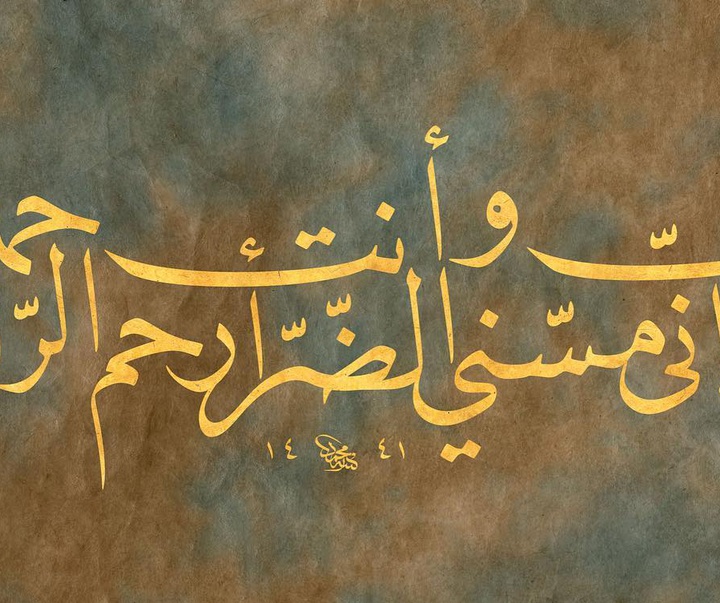 اني مسّني الضّرّ وأنت أرحم الرّحم
١٤ ٤١